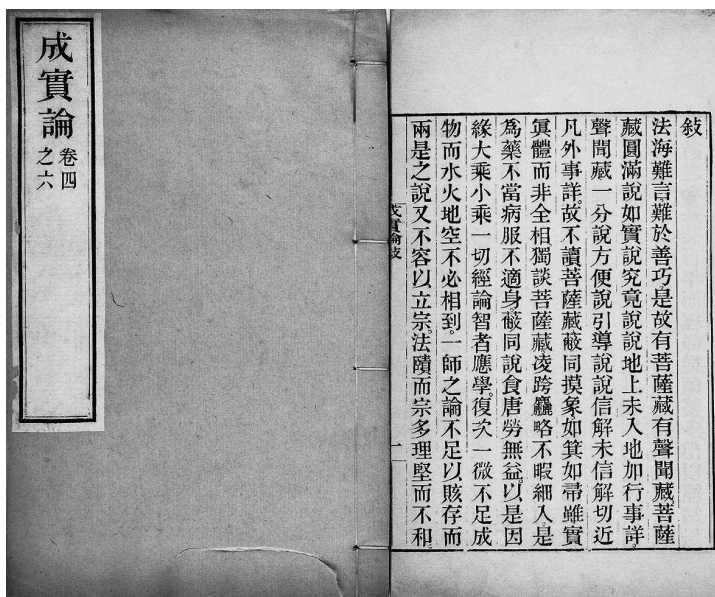 成實論
卷四
之六
敍
法海難言難於善巧是故有菩薩藏有聲聞藏菩薩
藏圓滿說如實說究竟說說地上未入地加行事詳
聲聞藏一分說方便說引導說說信解未信解切近
凡外事詳故不讀菩薩藏蔽同摸象如箕如帚雖實
眞體而非全相獨談菩薩藏凌跨麤略不暇細入是
爲藥不當病服不適身蔽同說食唐勞無益以是因
緣大乘小乘一切經論智者應學復次一微不足成
物而水火地空不必相到一師之論不足以賅存而
兩是之說又不容以立宗法賾而宗多理堅而不和
成實論敍
一